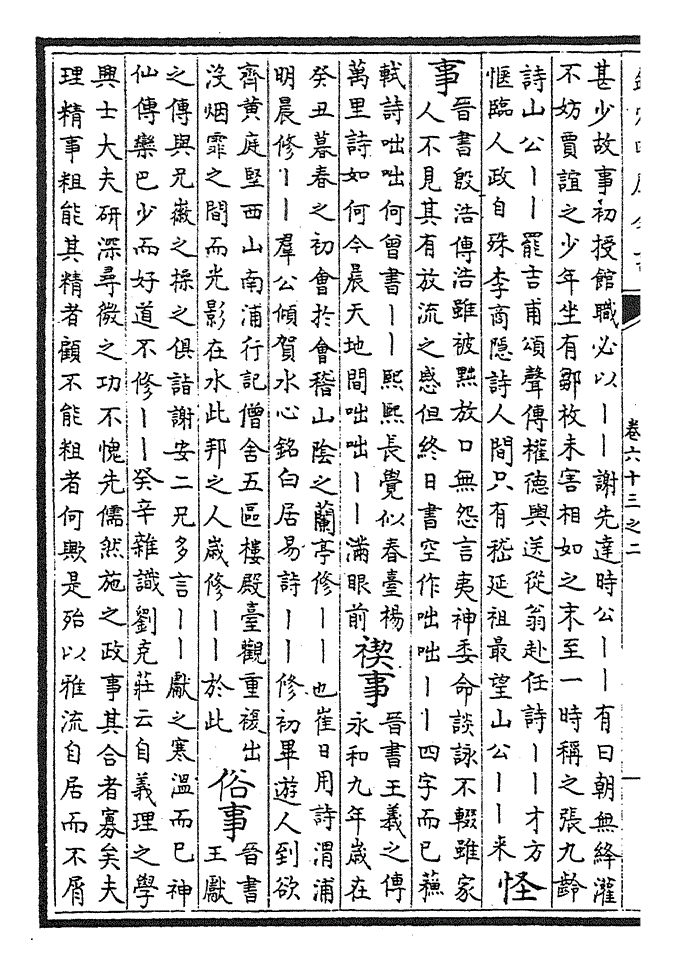 卷六十三之二
甚少故事初授館職必以丨丨謝先達時公丨丨有曰朝無絳灌
不妨賈誼之少年坐有鄒枚未害相如之末至一時稱之張九齡
詩山公丨丨罷吉甫頌聲傳權德輿送從翁赴任詩丨丨才方
愜臨人政自殊李商隱詩人間只有嵇延祖最望山公丨丨来
怪
事
晉書殷浩傳浩雖被黜放口無怨言夷神委命談詠不輟雖家
人不見其有放流之慼但終日書空作咄咄丨丨四字而已蘇
軾詩咄咄何曾書丨丨熙熙長覺似春臺楊
萬里詩如何今晨天地間咄咄丨丨滿眼前
禊事
晉書王羲之傳
永和九年歲在
癸丑暮春之初會於會稽山陰之蘭亭修丨丨也崔日用詩渭浦
明晨修丨丨羣公傾賀水心銘白居易詩丨丨修初畢遊人到欲
齊黄庭堅西山南浦行記僧舍五區樓殿臺觀重複出
沒烟霏之間而光影在水此邦之人嵗修丨丨於此
俗事
晉書
王獻
之傳與兄徽之操之俱詣謝安二兄多言丨丨獻之寒溫而已神
仙傳欒巴少而好道不修丨丨癸辛雜識劉克莊云自義理之學
興士大夫研深尋微之功不愧先儒然施之政事其合者寡矣夫
理精事粗能其精者顧不能粗者何歟是殆以雅流自居而不屑